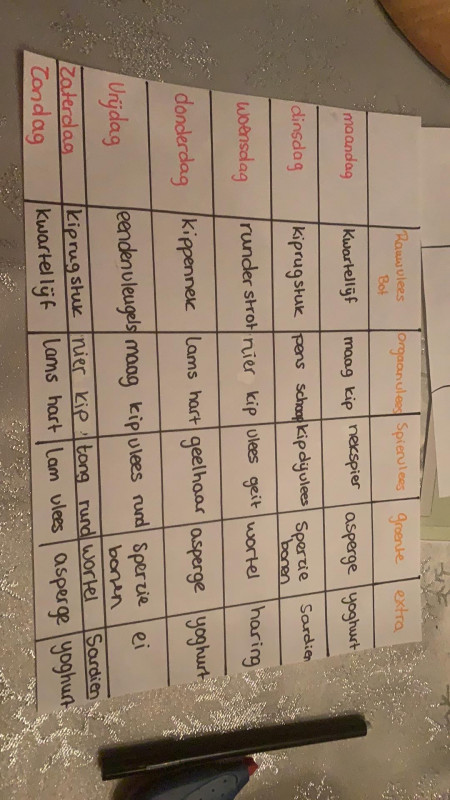 Rauwvlees Bot orgaanvlees Spiervlees groente extra
maandag kwartellijf maag kip nekspier asperge yoghurt
dinsdag kiprugstuk pens schaap kipdijvlees Sperzie bonen Sardien
woensdag runderstrot nier kip vlees geit wortel haring
donderdag kippennek lams hart geelhaar asperge yoghurt
Vrijdag eendenvleugels maag kip vlees rund Sperzie bonen ei
Zaterdag kiprugstuk nier kip tong rund wortel Sardien
Zondag kwartellijf lams hart lam vlees asperge yoghurt